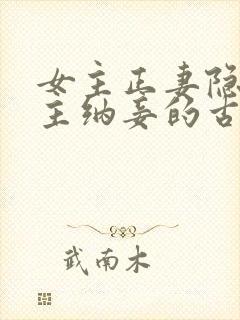 女主正妻隐
主纳妾的古
武南木